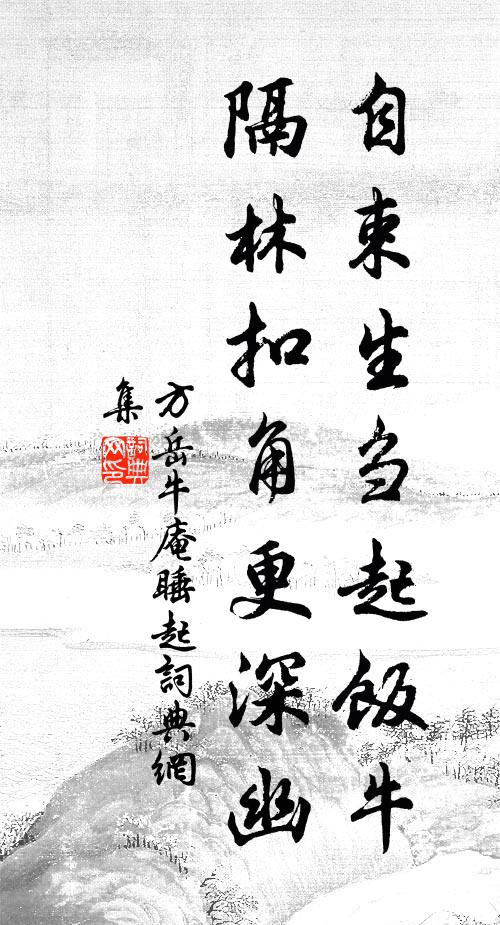 自束生刍起飯牛
隔林扣角更深幽
方岳牛庵睡起詞典網
集
詞典
网印